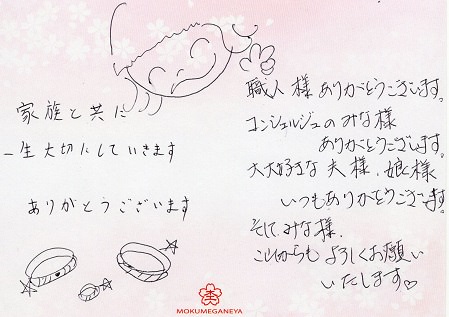 家族と共に
一生大切にしていきます
ありがとうございます
職人様ありがとうございます。
コンシェルジュのみな様
ありがとうございます。
大大好きな夫様、娘様
いつもありがとうございます。
そしてみな様、
これからもよろしくお願い
いたします♡
MOKUMEGANEYA